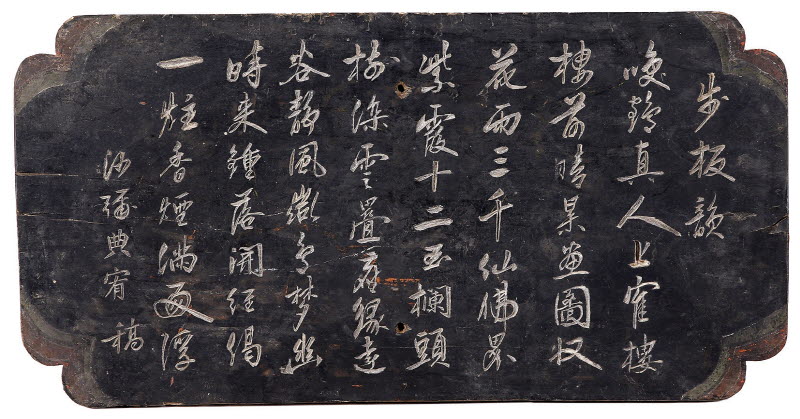 步板韻
喚真人上寉樓
樓前晴景畫圖收
花雨三千仙佛界
紫霞十二玉欄頭
樹深雲疊塵緣遠
谷靜風微鳥梦幽
時来鍾落聞經偈
一炷香煙滿面浮
沙彌典宥 稿